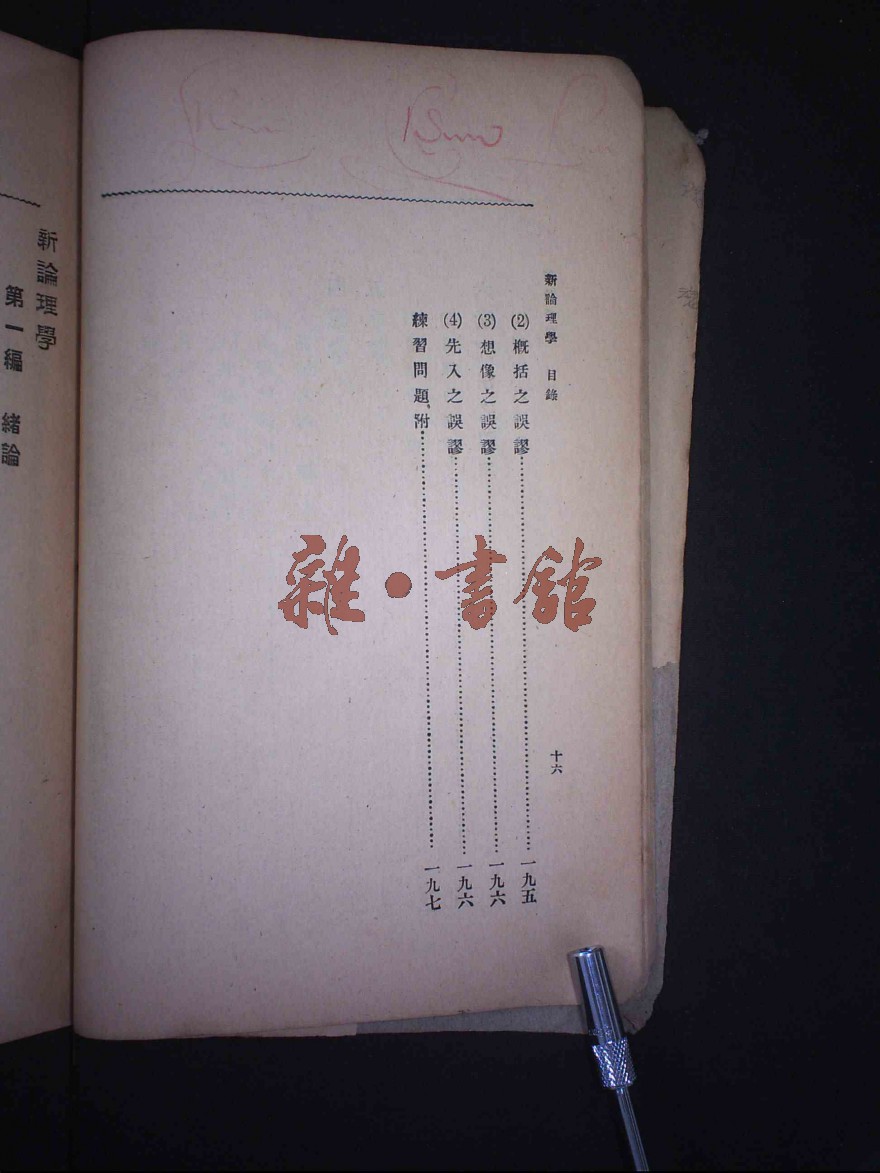 新論理學　目錄
(2)概括之誤謬…………一九五
(3)想像之誤謬…………一九六
(4)先入之誤謬…………一九六
練習問題、附…………一九七
十六
新論理學
第一編　緒論
雜•書館